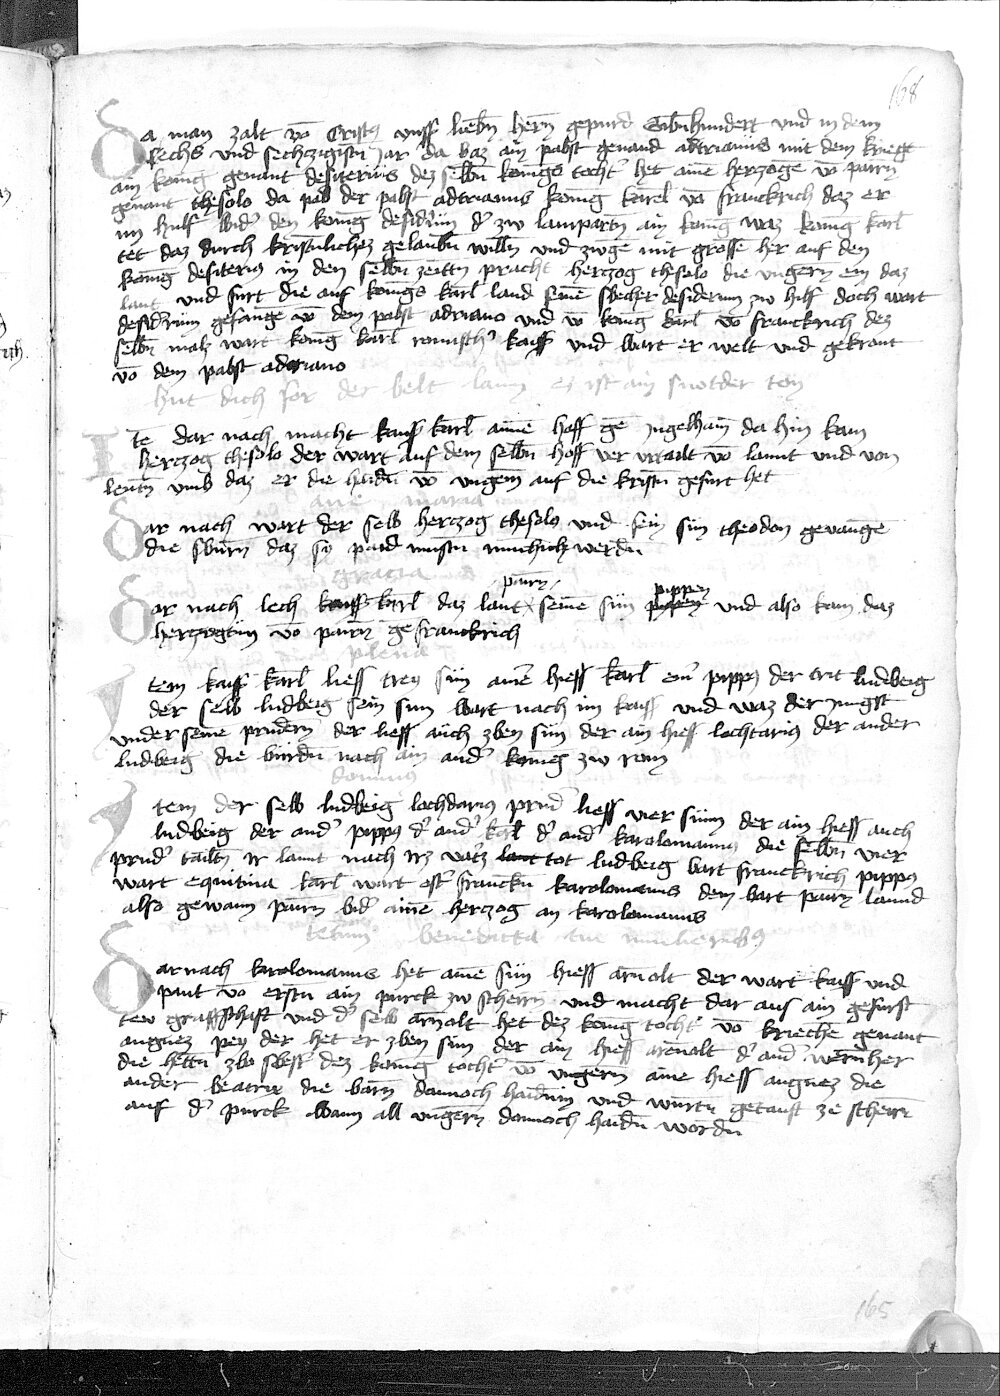 168
Da man zalt vō Cristꝯ vnsſ liebn̄ herrn̄ gepurd Sibnhundert vnd in dem
sechs vnd sechzigistn̄ jar da waz ain pabst genand adrianus mit dem kriegt
ain konig genant desiterius dez selbn̄ konigs tochtˀ het aine herczoge vō pairn
genant thesolo da pad der pabst adrianus konig karel vō franckrich daz er
im hulf widˀ den konig desidˀim dˀ zw lamparttn ain konig waz konig karl
tet daz durch kristnlichez gelaubn̄ willn̄ vnd zoge mit grosse her auf den
konig desiteriꝯ in den selbn̄ zeittn pracht herczog thesolo die vngern ein daz
lant vnd furt die auf konigs karl land seine swecher desiderium zw hilf doch wart
desidˀium gefange vō dem pabst adriano vnd vō konig karl vō franckrich dez
selbn̄ malz wart konig karl romischˀ kaisˀ vnd wart er welt vnd gekront
vō dem pabst adriano
hut dich for der welt lauff es ist ain
Itē dar nach macht kaisˀ karl aine hoff ze Ingelhaim da hin kam
herczog thesolo der wart auf dem selbn̄ hoff ver vrtailt vō lannt vnd von
leutn̄ vmb daz er die haidn̄ vō vngern auf die kristn̄ gefurt het
aue maria
Dar nach wart der selb herczog thesolo vnd sein sun theodon gevange
die swurn̄ daz sy paid mustn̄ munich werdn̄
gracia
pairn
pippen
Dar nach lech kaisˀ karl daz lant seine sun pippen vnd also kam daz
herczogtum vō pairn̄ ge franckrich
plena
Item kaisˀ karl liess trey sun aine hiess karl einˀ pippꝯ der trit ludbeig
der selb ludbeig sein sun wart nach im kaisˀ vnd waz der Jungst
vnder seine prudern̄ der liess auch zben sun der ain hiess lochtariꝯ der ander
ludbeig die wurdn̄ nach ain andˀ konig zw rom
dominus
Item der selb ludbeig lochdariꝯ prudˀ liess vier sunn der ain hiess auch
ludbeig der andˀ pippꝯ dˀ andˀ karl dˀ andˀ karolomannus die selbn̄ vier
prudˀ tailtn̄ ir lannt nach irz vatˀz lant tot ludbeig wart franckrich pippꝯ
wart equitina karl wart ostˀ franckn̄ karolomanus dem wart pairn lannd
also gewann pairn widˀ aine herczog an karolomanus
tecum benedicta tue mulieribꝯ
Darnach karolomannus het aine sun hiess arnolt der wart kaisˀ vnd
paut vō erstn̄ ain purck zw scheirn vnd macht dar aus ain gefurst
tew graffschaft vnd dˀ selb arnolt het dez konig tochtˀ vō krieche genant
angnez pey der het er zben sun der ain hiess arenolt dˀ andˀ wernher
die hettn̄ zbo swestˀ dez konig tochtˀ vō vngern aine hiess angnez die
ander beatrix die warn dannoch haidnin vnd wurtn̄ getauft ze scheirn
auf dˀ purck wann all vngern dannoch haidn̄ wordn̄
165